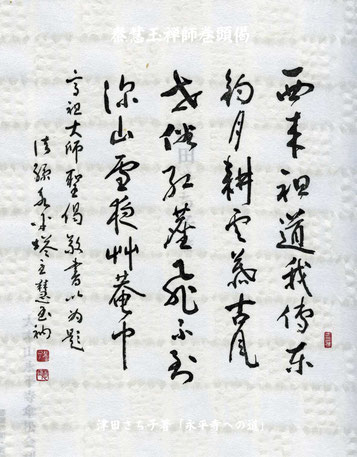 秦慧玉禅師巻頭偈
西来祖道我傳東
釣月耕雲慕古風
世俗紅塵飛不到
深山雪夜艸菴中
高祖大師聖偈敬書以為題
法孫永平塔主慧玉衲
津田さち子著「永平寺への道」